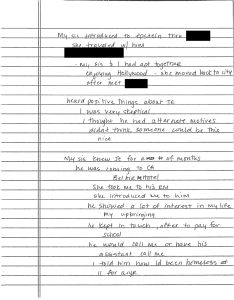 My sis introduced to Epstein thru
she traveled w/ him
- my sis & I had apt together
enjoying Hollywood - she moved back to city
after met
heard positive things about JE
I was very skeptical
I thought he had alternet motives
didn't think someone could be this
nice
My sis knew JE for a of months
he was coming to CA
Bel Air Hotel
She took me to his RM
she introduced me to him
he showed a lot of interest in my life
my upbringing
he kept in touch, offer to pay for
school
he would call me or have his
assistant call me
I told him how Id been homeless at
for a